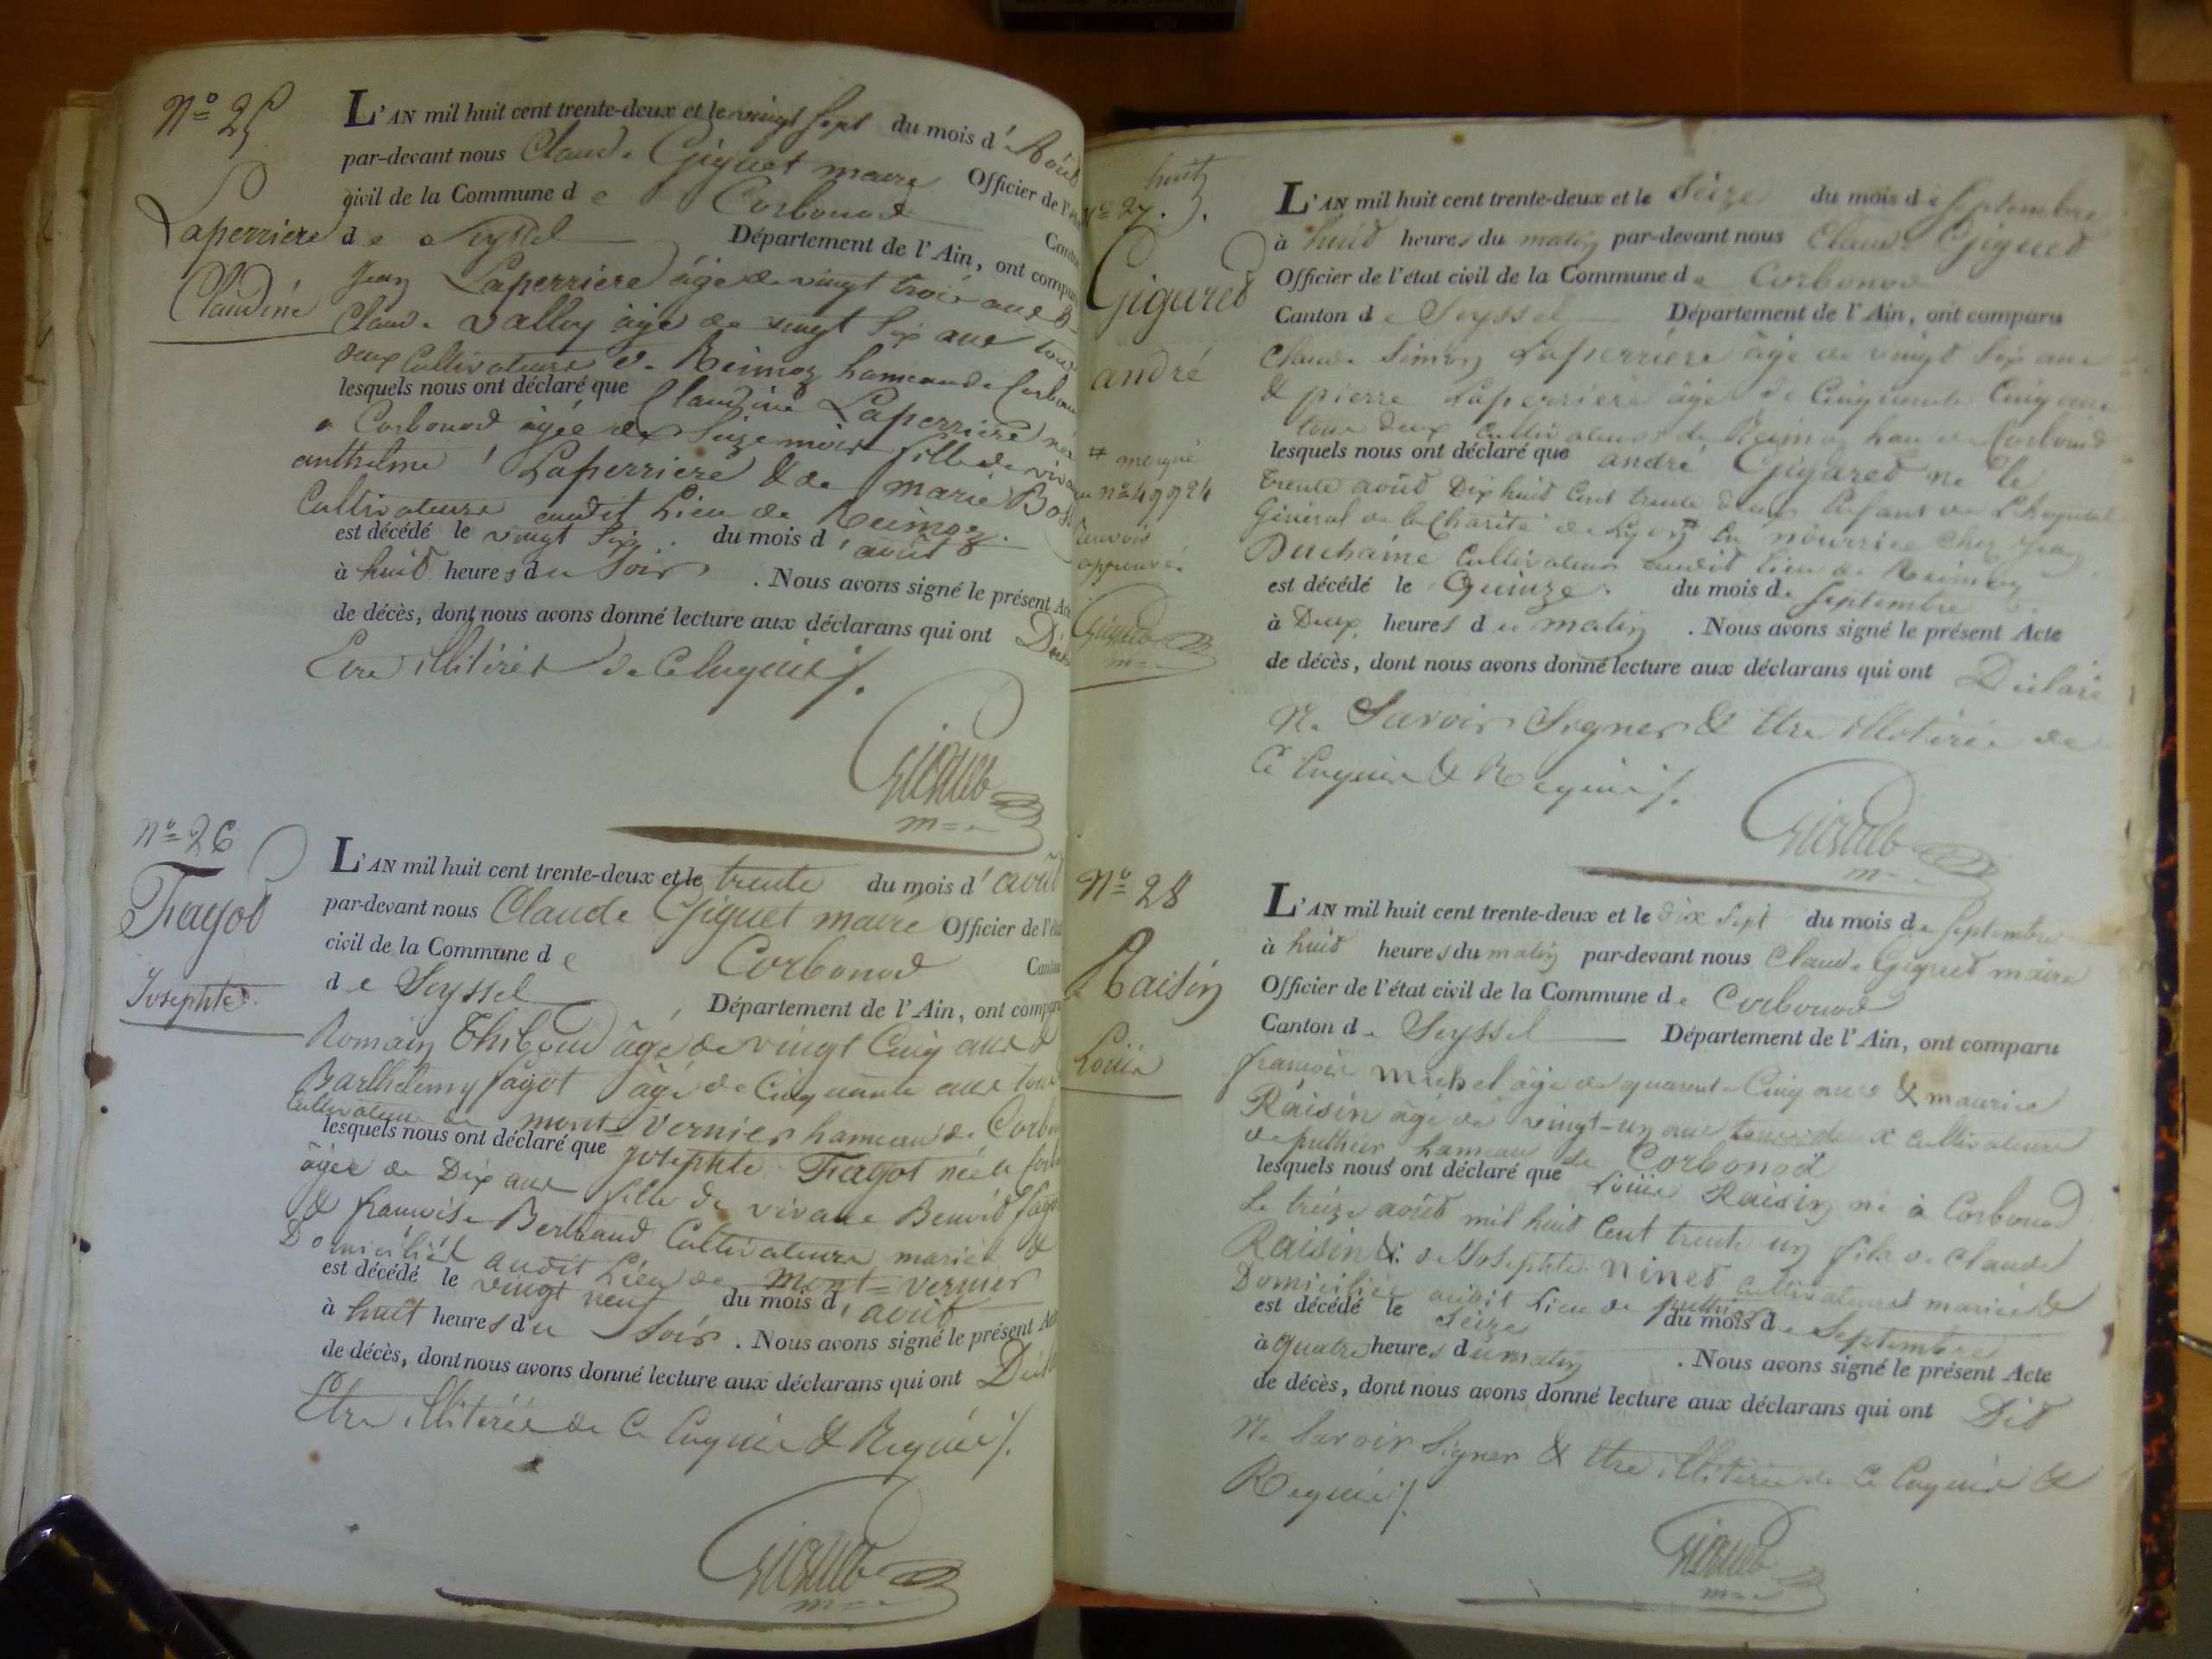 N° 25
Laperriere
Claudine
L'AN mil huit cent trente-deux et le vingt sept du mois d' Août
par-devant nous Claude Giguet maire Officier de l'état
civil de la Commune d e Corbonod Canton
d e Seyssel Département de l'Ain, ont comparu
Jean Laperriere âgé de vingt trois ans &
Claude Vallay âgé de vingt six ans tous
deux cultivateurs de Reimoz hameau de Corbonod
lesquels nous ont déclaré que Claudine Laperriere née
a Corbonod âgée de seize mois fille de vivans
anthelme Laperriere & de marie
Cultivateurs audit Lieu de Reimoz.
est décédé le vingt six du mois d' août
à huit heures du soir . Nous avons signé le présent Acte
de décès, dont nous avons donné lecture aux déclarans qui ont
Etre illitérés de ce Enquis /.
Giguet
m=e
N° 26
Fagot
Josephte
L'AN mil huit cent trente-deux et le trente du mois d' août
par-devant nous Claude Giguet maire Officier de l'état
civil de la Commune d e Corbonod Canton
d e Seyssel Département de l'Ain, ont comparu
Romain Thiboud âgé de vingt Cinq ans &
Barthelemy fagot âgé de Cinquante ans tous
Cultivateurs de mont=Vernier hameau de Corbonod
lesquels nous ont déclaré que Josephte Fagot née a
âgée de Dix ans fille de vivans Benoit fagot
& francoise Bertrand Cultivateurs mariés &
Domiciliés audit Lieu de mont=vernier
est décédé le vingt neuf du mois d' août
à huit heures du soir . Nous avons signé le présent Acte
de décès, dont nous avons donné lecture aux déclarans qui ont
Etre illitérés de ce Enquis & Requis /.
Giguet
m=e
huit
N° 27.
Gigared
andré
# marqué
au n° 49924
Renvoi
approuvé.
Giguet
m=e
L'AN mil huit cent trente-deux et le Seize du mois d e Septembre
à huit heures du matin par-devant nous Claude Giguet
Officier de l'état civil de la Commune d e Corbonod
Canton d e Seyssel Département de l'Ain, ont comparu
Claude Simon Laperriere âgé de vingt six ans
& pierre Laperriere âgé de Cinquante Cinq ans
tous deux Cultivateurs de Reimoz hau de Corbonod
lesquels nous ont déclaré que andré Gigared né le
trente août Dix huit Cent trente deux Enfant de L'hopital
Général de la Charité de Lyon # En nourrice Chez Jean
Duchaine Cultivateur audit lieu de Reimoz
est décédé le Quinze du mois d e Septembre
à Deux heures d u matin . Nous avons signé le présent Acte
de décès, dont nous avons donné lecture aux déclarans qui ont Déclaré
Ne Savoir Signer & Etre illitérés de
Ce Enquis & Requis /.
Giguet
m=e
N° 28
Raisin
Louis
L'AN mil huit cent trente-deux et le dix sept du mois d e Septembre
à huit heures du matin par-devant nous Claude Giguet maire
Officier de l'état civil de la Commune d e Corbonod
Canton d e Seyssel Département de l'Ain, ont comparu
francois michel âgé de quarante Cinq ans & maurice
Raisin âgé de vingt-un ans tous deux cultivateurs
de puthier hameau de Corbonod
lesquels nous ont déclaré que Louis Raisin né à Corbonod
Le treize août mil huit Cent trente un fils de Claude
Raisin & de Josephte ninet cultivateurs mariés &
Domiciliés audit Lieu de puthier
est décédé le Seize du mois d e Septembre
à quatre heures d u matin . Nous avons signé le présent Acte
de décès, dont nous avons donné lecture aux déclarans qui ont Dit
Ne Savoir Signer & Etre illitérés de Ce Enquis &
Requis /.
Giguet
m=e